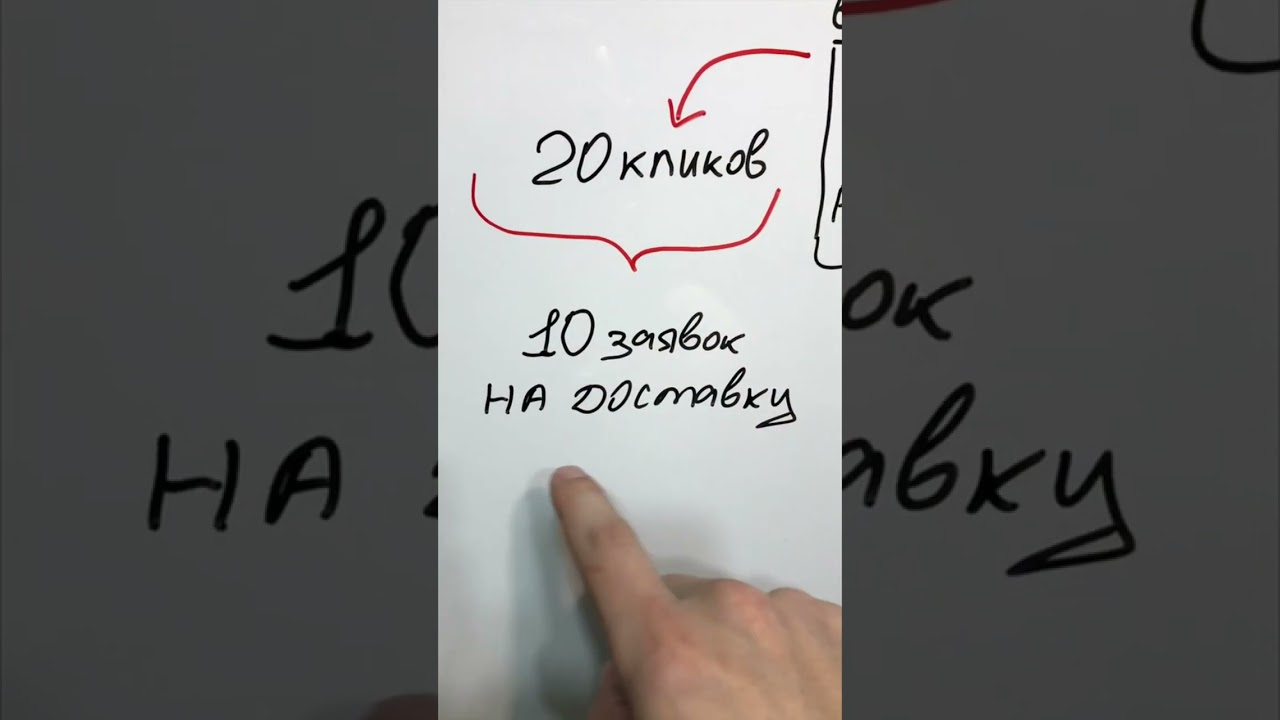 20 кликов
10 заявок
НА доставку